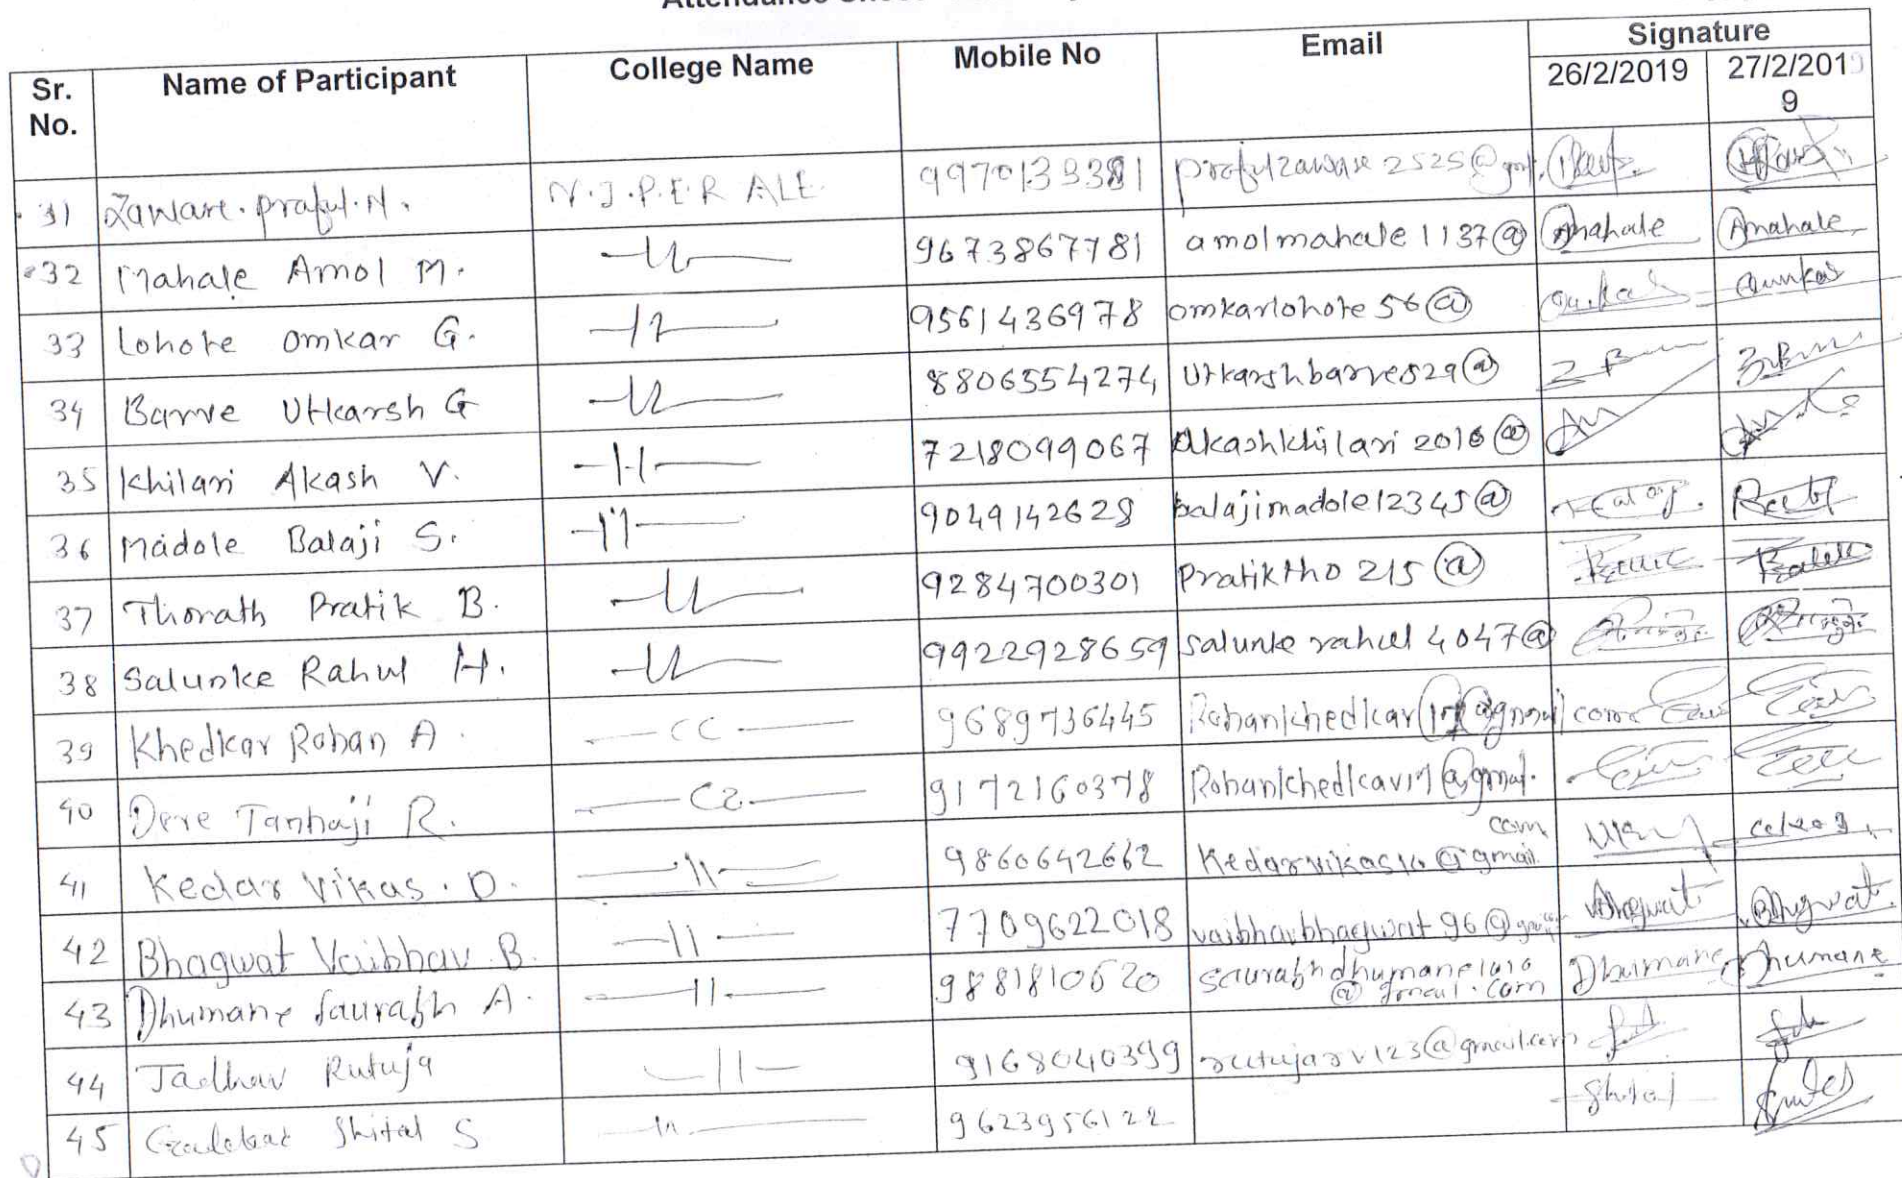 Sr. No. Name of Participant College Name Mobile No Email Signature
26/2/2019 27/2/2019
31 Zaware. praful. N. N.J.P.E.R ALE. 9970133381 prafulzaware2525@
32 Mahale Amol M. —11— 9673867781 amolmahale1137@ Amahale Amahale
33 Lohote omkar G. —11— 9561436978 omkarlohote56@
34 Barve Utkarsh G —11— 8806554274 Utkarshbarve829@
35 Khilari Akash V. —11— 7218099067 Akashkhilari2016@
36 Madole Balaji S. —11— 9049142628 balajimadole12345@
37 Thorath Pratik B. —11— 9284700301 Pratiktho215@
38 Salunke Rahul H. —11— 9922928659 Salunke rahul 4047@
39 Khedkar Rohan A. —11— 9689736445 Rohankhedkar17@gmail.com
40 Dere Tanhaji R. —11— 9172160378 Rohankhedkar17@gmail.com
41 Kedar Vikas. D. —11— 9860642662 Kedarvikas10@gmail.
42 Bhagwat Vaibhav B. —11— 7709622018 vaibhavbhagwat96@ Bhagwat Bhagwat
43 Dhumane Saurabh A. —11— 9881810620 saurabhdhumane1010
@gmail.com Dhumane Dhumane
44 Jadhav Rutuja —11— 9168040399 rutujarv123@gmail.com
45 Shital S —11— 9623956122 Shital